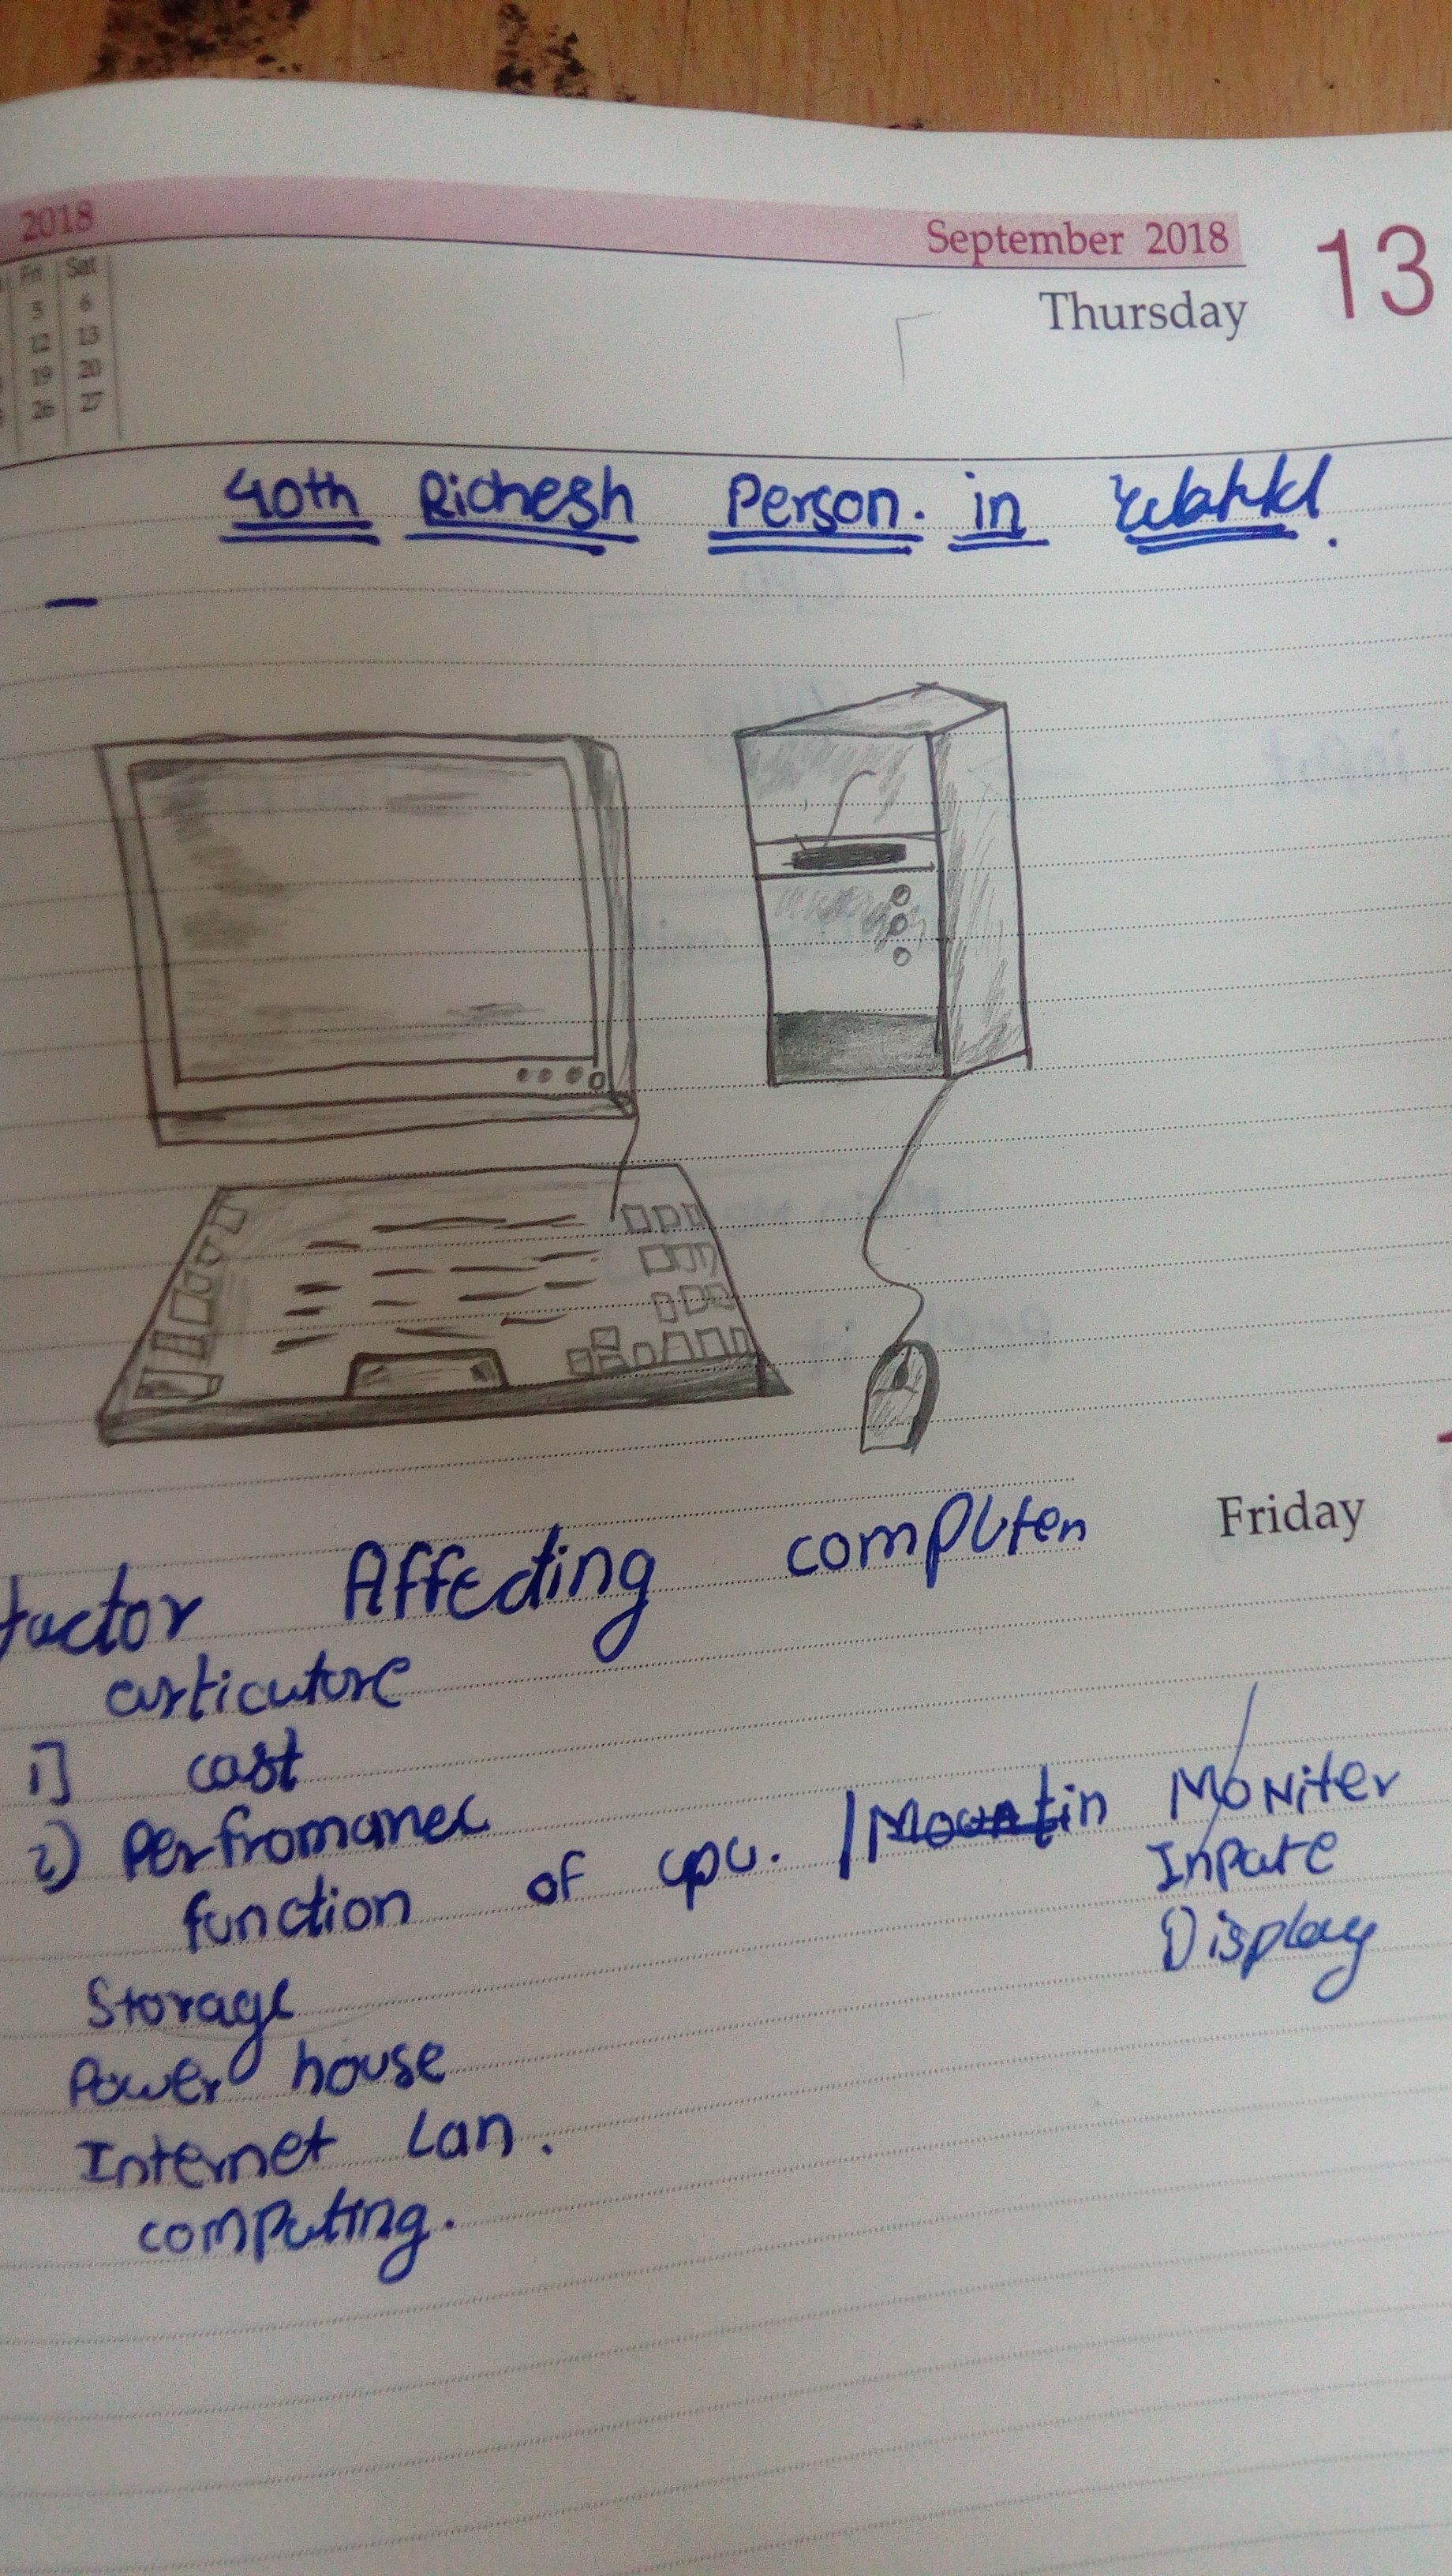 2018
September 2018
13
Thursday
Fri Sat
5 6
12 13
19 20
26 27
40th Richesh Person. in
Friday
factor Affecting computer
articuture
1] cost
2) Perfromanec
function of cpu. / in Moniter
Inpute
Display
Storage
Power house
Internet Lan.
computing.